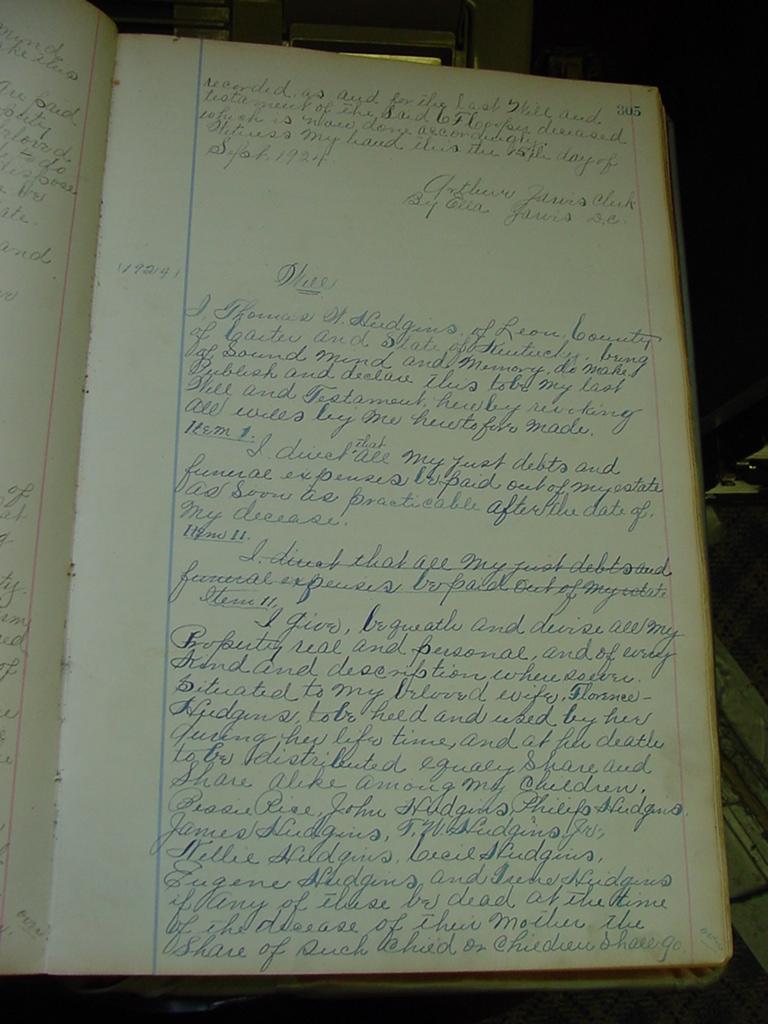 305
recorded as and for the Last Will and
testament of the Said C F Cooper deceased
which is now done accordingly.
Witness My hand this the 15th day of
Sept. 1924
Arthur Jarvis Clerk
By Ella Jarvis D.C.
(1924)
Will
I, Thomas W. Hudgins, of Leon, County
of Carter and State of Kentucky, being
of Sound Mind and Memory, do make
Publish and declare this to be my last
Will and Testament, hereby revoking
all wills by me heretofore made.
Item 1.
I direct that all my just debts and
funeral expenses be paid out of my estate
as soon as practicable after the date of
my decease.
Item 11.
I direct that all my just debts and
funeral expenses be paid out of my estate
Item 11,
I give, bequeath and devise all my
Property real and personal, and of every
Kind and description, wheresoever
Situated to my beloved wife, Florence-
Hudgins, to be held and used by her
during her life time, and at her death
to be distributed equaly Share and
Share alike among my Children,
Bessie Rice, John Hudgins, Philip Hudgins,
James Hudgins, T. W. Hudgins, Jr,
Nellie Hudgins, Cecil Hudgins,
Eugene Hudgins, and Irene Hudgins
if any of these be dead at the time
of the decease of their Mother the
Share of such Child or Children shall go
over